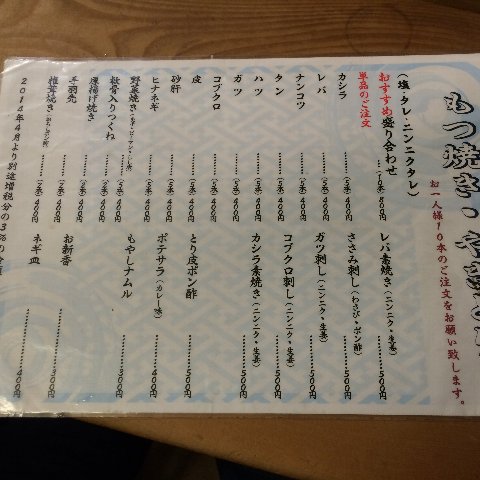 もつ焼き・
お一人様10本のご注文をお願い致します。
（塩・タレ・ニンニクタレ）
おすすめ盛り合わせ
単品のご注文
カシラ……（2本）400円
レバ……（2本）400円
ナンコツ……（2本）400円
タン……（2本）400円
ハツ……（2本）400円
ガツ……（2本）400円
コブクロ……（2本）400円
皮……（2本）400円
砂肝……（2本）400円
ヒナネギ……（2本）400円
野菜焼き
軟骨入りつくね
手羽先
椎茸焼き
2014年4月より別途増税分の3%の
レバ素焼き（ニンニク・生姜）……500円
ささみ刺し（わさび・ポン酢）……500円
ガツ刺し（ニンニク・生姜）……500円
コブクロ刺し（ニンニク・生姜）……500円
カシラ素焼き（ニンニク・生姜）……500円
とり皮ポン酢……500円
ポテサラ（カレー味）……400円
もやしナムル……300円
お新香……300円
ネギ皿……400円